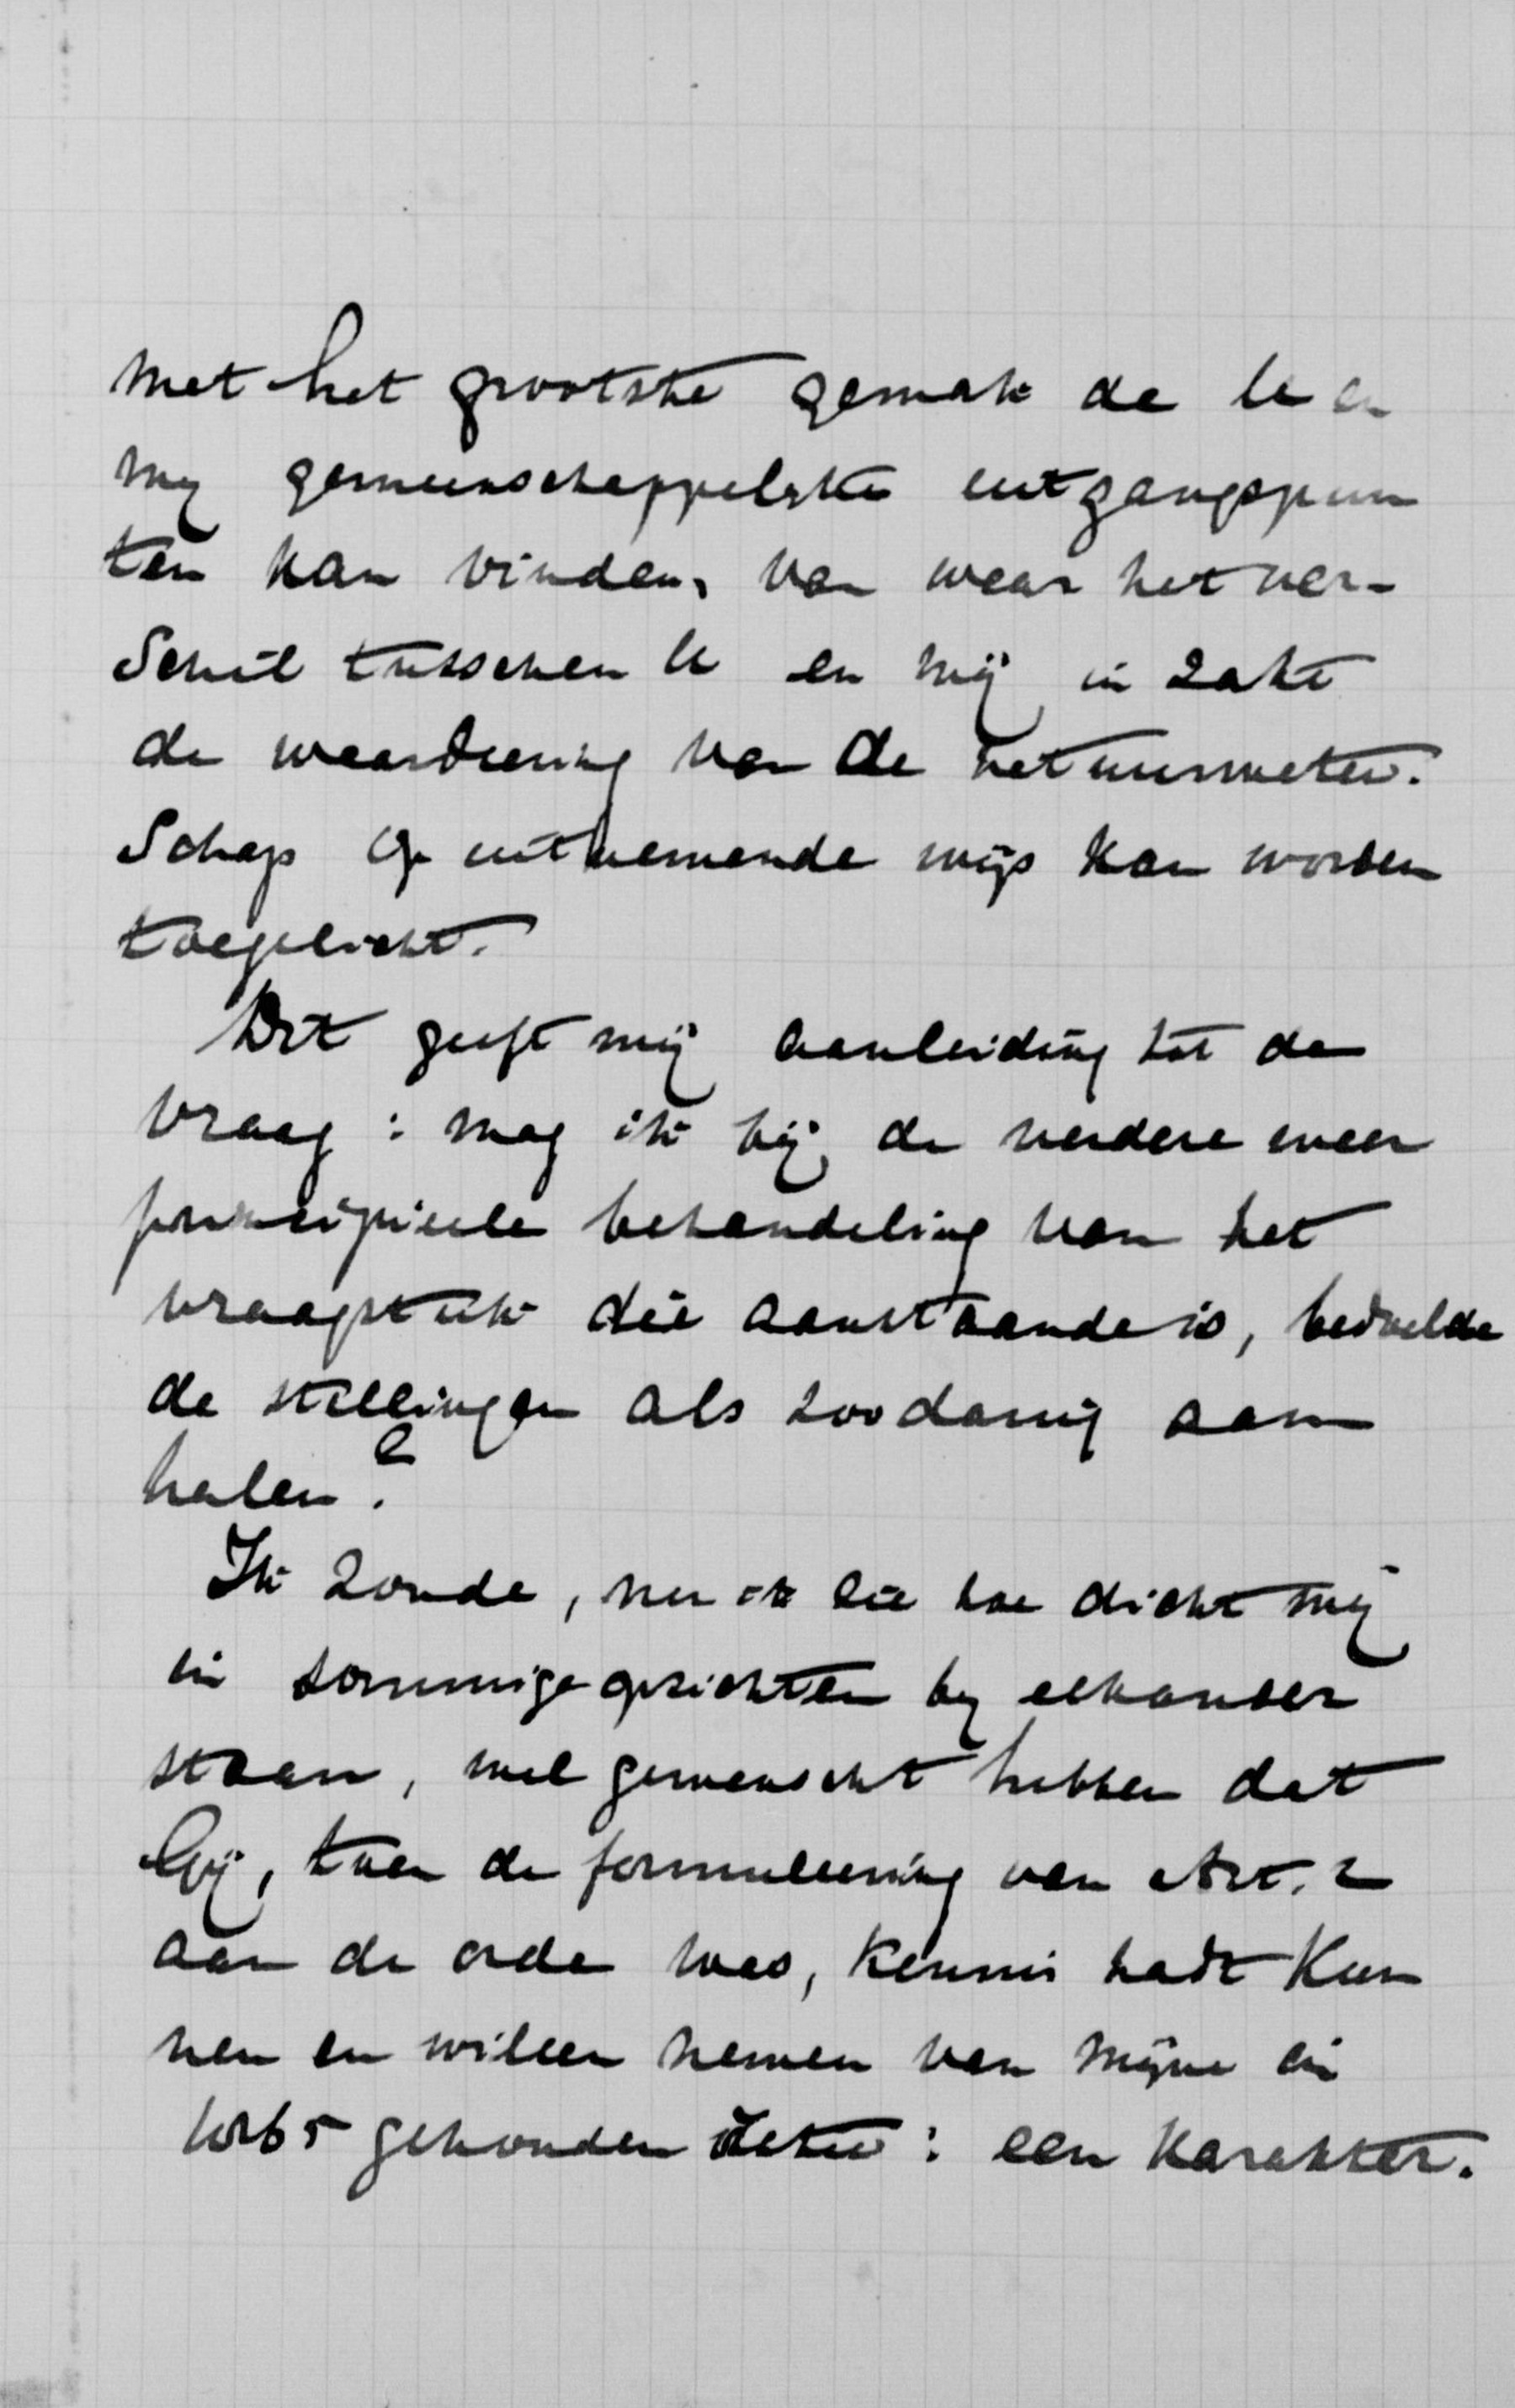 met het grootste gemak de U en
my gemeenschappelyke uitgangspun
ten kan vinden, van waar het ver-
schil tusschen U en mij in zake
de waardeering van de natuurweten.
schap op uitnemende wijs kan worden
toegelicht.
Dit geeft mij aanleiding tot de
vraag: mag ik bij de verdere meer
principieele behandeling van het
vraagstuk die aanstaande is, bedoelde
de stellingen als zoodanig aan
halen?
Ik zoude, nu ik zie hoe dicht wij
in sommige opzichten by elkander
staan, wel gewenscht hebben dat
Gij, toen de formuleering van Art. 2
aan de orde was, kennis hadt kun
nen en willen nemen van mijne in
gehouden : een karakter.